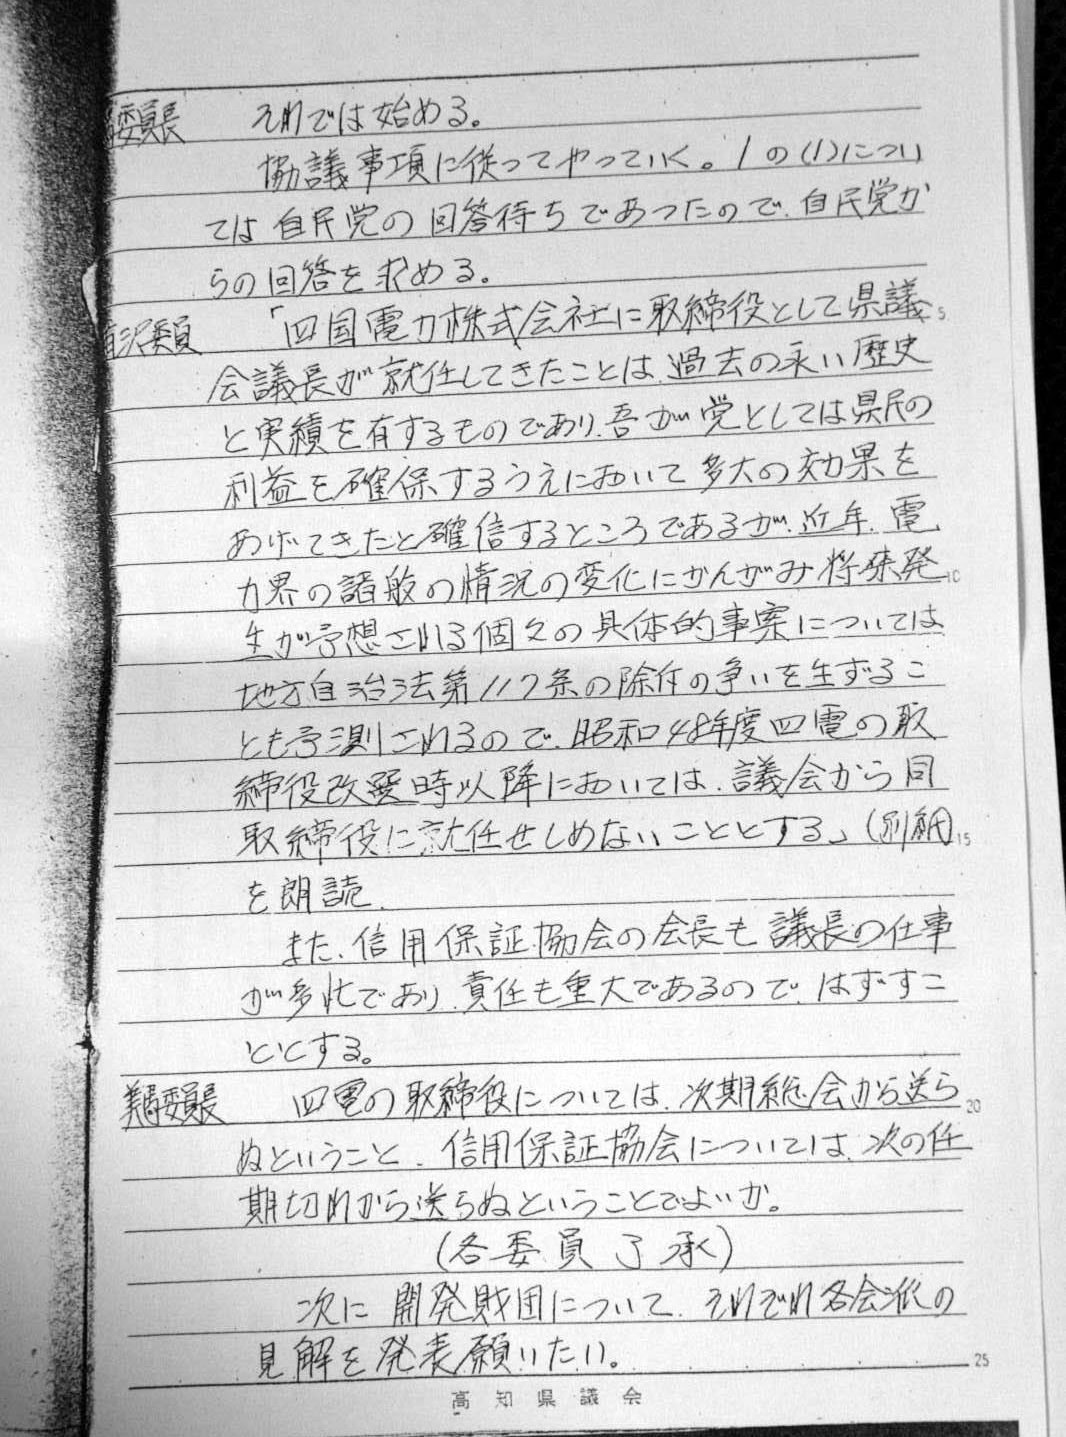 委員長　それでは始める。
協議事項に従ってやっていく。1の(1)につい
ては自民党の回答待ちであったので、自民党か
らの回答を求める。
沢委員　「四国電力株式会社に取締役として県議 5
会議長が就任してきたことは、過去の永い歴史
と実績を有するものであり、吾が党としては県民の
利益を確保するうえにおいて多大の効果を
あげてきたと確信するところであるが、近年、電
力界の諸般の情況の変化にかんがみ将来発 10
生が予想される個々の具体的事案については
地方自治法第117条の除斥の争いを生ずるこ
とも予測されるので、昭和48年度四電の取
締役改選時以降においては、議会から同
取締役に就任せしめないこととする」(別紙) 15
を朗読。
また、信用保証協会の会長も議長の仕事
が多忙であり、責任も重大であるので、はずすこ
ととする。
委員長　四電の取締役については、次期総会から送ら 20
ぬということ、信用保証協会については、次の任
期切れから送らぬということでよいか。
(各委員了承)
次に開発財団について、それぞれ各会派の
見解を発表願いたい。 25
高知県議会